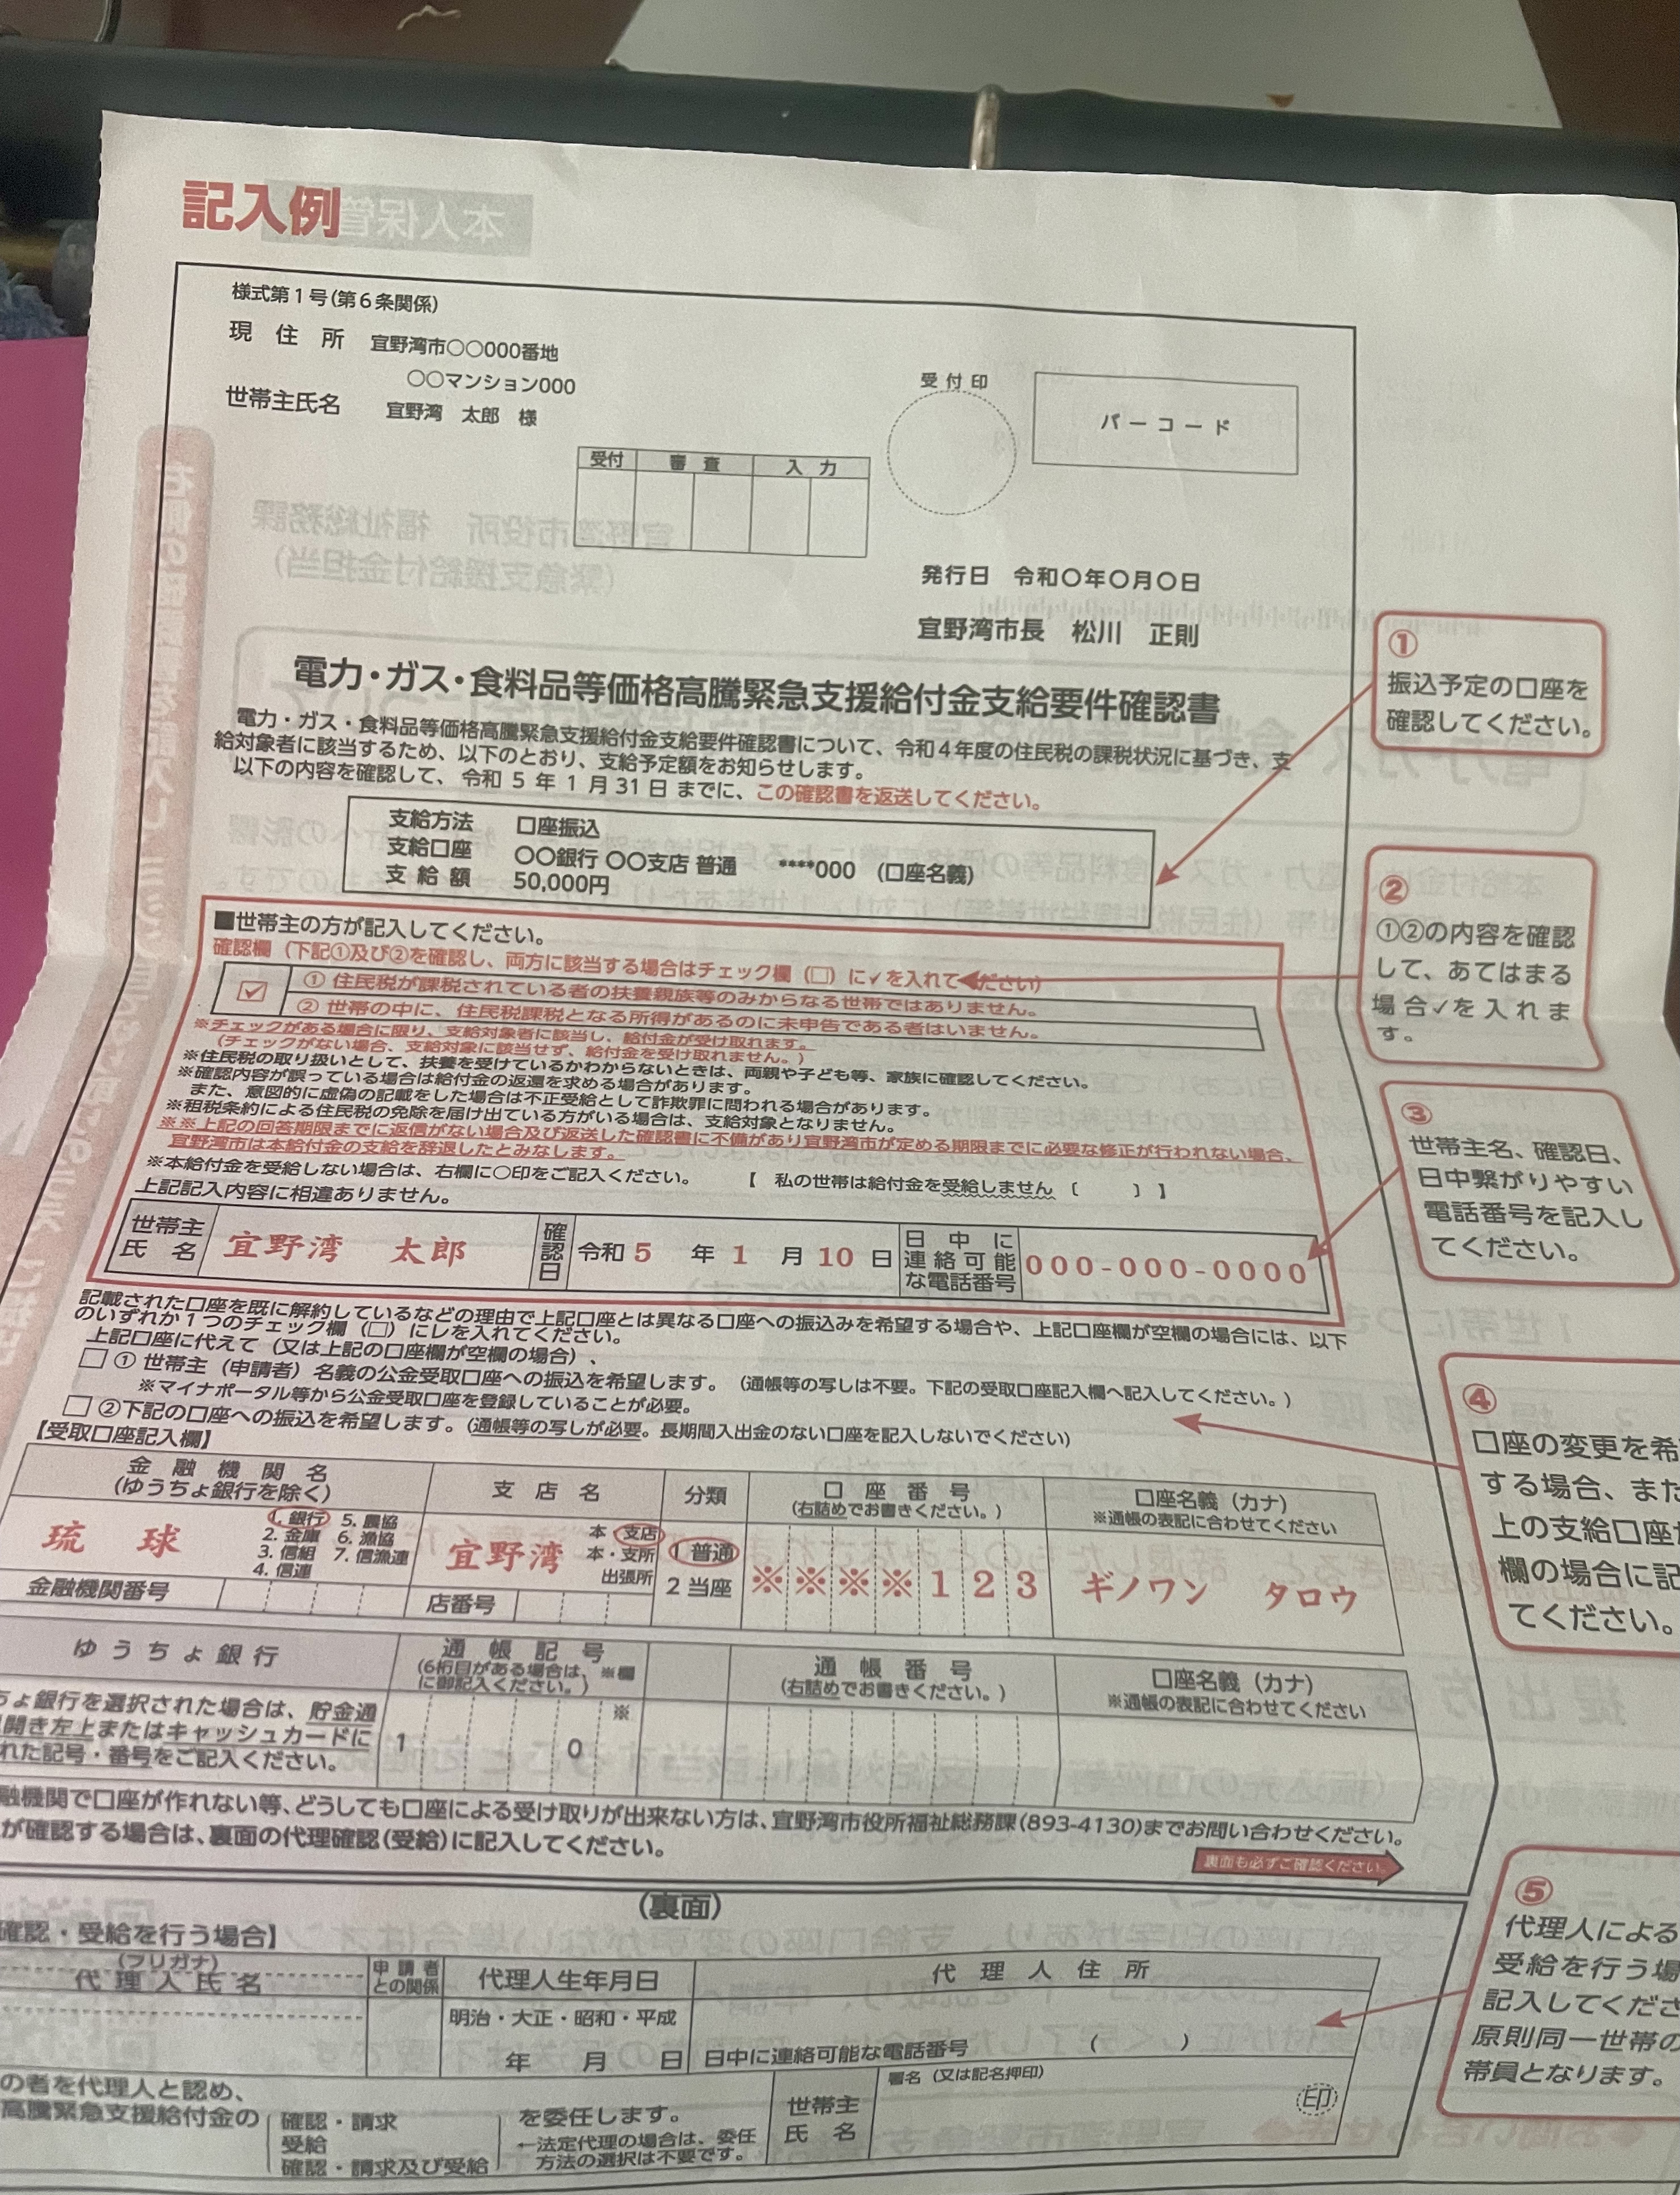 記入例
様式第1号(第6条関係)
現住所 宜野湾市〇〇000番地
〇〇マンション000
世帯主氏名 宜野湾 太郎 様
受付印
バーコード
受付 審査 入力
発行日 令和〇年〇月〇日
宜野湾市長 松川 正則
電力・ガス・食料品等価格高騰緊急支援給付金支給要件確認書
電力・ガス・食料品等価格高騰緊急支援給付金支給要件確認書について、令和4年度の住民税の課税状況に基づき、支
給対象者に該当するため、以下のとおり、支給予定額をお知らせします。
以下の内容を確認して、令和 5 年 1 月 31 日 までに、この確認書を返送してください。
支給方法 口座振込
支給口座 〇〇銀行 〇〇支店 普通 ****000 (口座名義)
支給額 50,000円
①
振込予定の口座を
確認してください。
■世帯主の方が記入してください。
確認欄(下記①及び②を確認し、両方に該当する場合はチェック欄(□)に✓を入れてください)
① 住民税が課税されている者の扶養親族等のみからなる世帯ではありません。
② 世帯の中に、住民税課税となる所得があるのに未申告である者はいません。
※チェックがある場合に限り、支給対象者に該当し、給付金が受け取れます。
(チェックがない場合、支給対象に該当せず、給付金を受け取れません。)
※住民税の取り扱いとして、扶養を受けているかわからないときは、両親や子ども等、家族に確認してください。
※確認内容が誤っている場合は給付金の返還を求める場合があります。
また、意図的に虚偽の記載をした場合は不正受給として詐欺罪に問われる場合があります。
※租税条約による住民税の免除を届け出ている方がいる場合は、支給対象となりません。
※※上記の回答期限までに返信がない場合及び返送した確認書に不備があり宜野湾市が定める期限までに必要な修正が行われない場合、
宜野湾市は本給付金の支給を辞退したとみなします。
※本給付金を受給しない場合は、右欄に〇印をご記入ください。 【 私の世帯は給付金を受給しません ( ) 】
上記記入内容に相違ありません。
世帯主氏名 宜野湾 太郎 確認日 令和 5 年 1 月 10 日 日中に連絡可能な電話番号 000-000-0000
②
①②の内容を確認
して、あてはまる
場合✓を入れま
す。
③
世帯主名、確認日、
日中繋がりやすい
電話番号を記入し
てください。
記載された口座を既に解約しているなどの理由で上記口座とは異なる口座への振込みを希望する場合や、上記口座欄が空欄の場合には、以下
のいずれか1つのチェック欄(□)にレを入れてください。
上記口座に代えて(又は上記の口座欄が空欄の場合)、
□ ① 世帯主(申請者)名義の公金受取口座への振込を希望します。(通帳等の写しは不要。下記の受取口座記入欄へ記入してください。)
※マイナポータル等から公金受取口座を登録していることが必要。
□ ②下記の口座への振込を希望します。(通帳等の写しが必要。長期間入出金のない口座を記入しないでください)
【受取口座記入欄】
金融機関名
(ゆうちょ銀行を除く)
支店名
分類
口座番号
(右詰めでお書きください。)
口座名義(カナ)
※通帳の表記に合わせてください
琉球
1. 銀行 5. 農協
2. 金庫 6. 漁協
3. 信組 7. 信漁連
4. 信連
宜野湾
本・支店
本・支所
出張所
1 普通
2 当座
※※※※123
ギノワン タロウ
金融機関番号
店番号
④
口座の変更を希
する場合、また
上の支給口座
欄の場合に記
てください。
ゆうちょ銀行
通帳記号
(6桁目がある場合は、※欄
に御記入ください。)
通帳番号
(右詰めでお書きください。)
口座名義(カナ)
※通帳の表記に合わせてください
ちょ銀行を選択された場合は、貯金通
開き左上またはキャッシュカードに
れた記号・番号をご記入ください。
1 0 ※
融機関で口座が作れない等、どうしても口座による受け取りが出来ない方は、宜野湾市役所福祉総務課(893-4130)までお問い合わせください。
が確認する場合は、裏面の代理確認(受給)に記入してください。
裏面も必ずご確認ください。
(裏面)
確認・受給を行う場合】
(フリガナ)
代理人氏名
申請者
との関係
代理人生年月日
代理人住所
明治・大正・昭和・平成
年 月 日
日中に連絡可能な電話番号 ( )
の者を代理人と認め、
高騰緊急支援給付金の
確認・請求
受給
確認・請求及び受給
を委任します。
←法定代理の場合は、委任
方法の選択は不要です。
世帯主
氏名
署名(又は記名押印)
印
⑤
代理人による
受給を行う場
記入してくださ
原則同一世帯の
帯員となります。